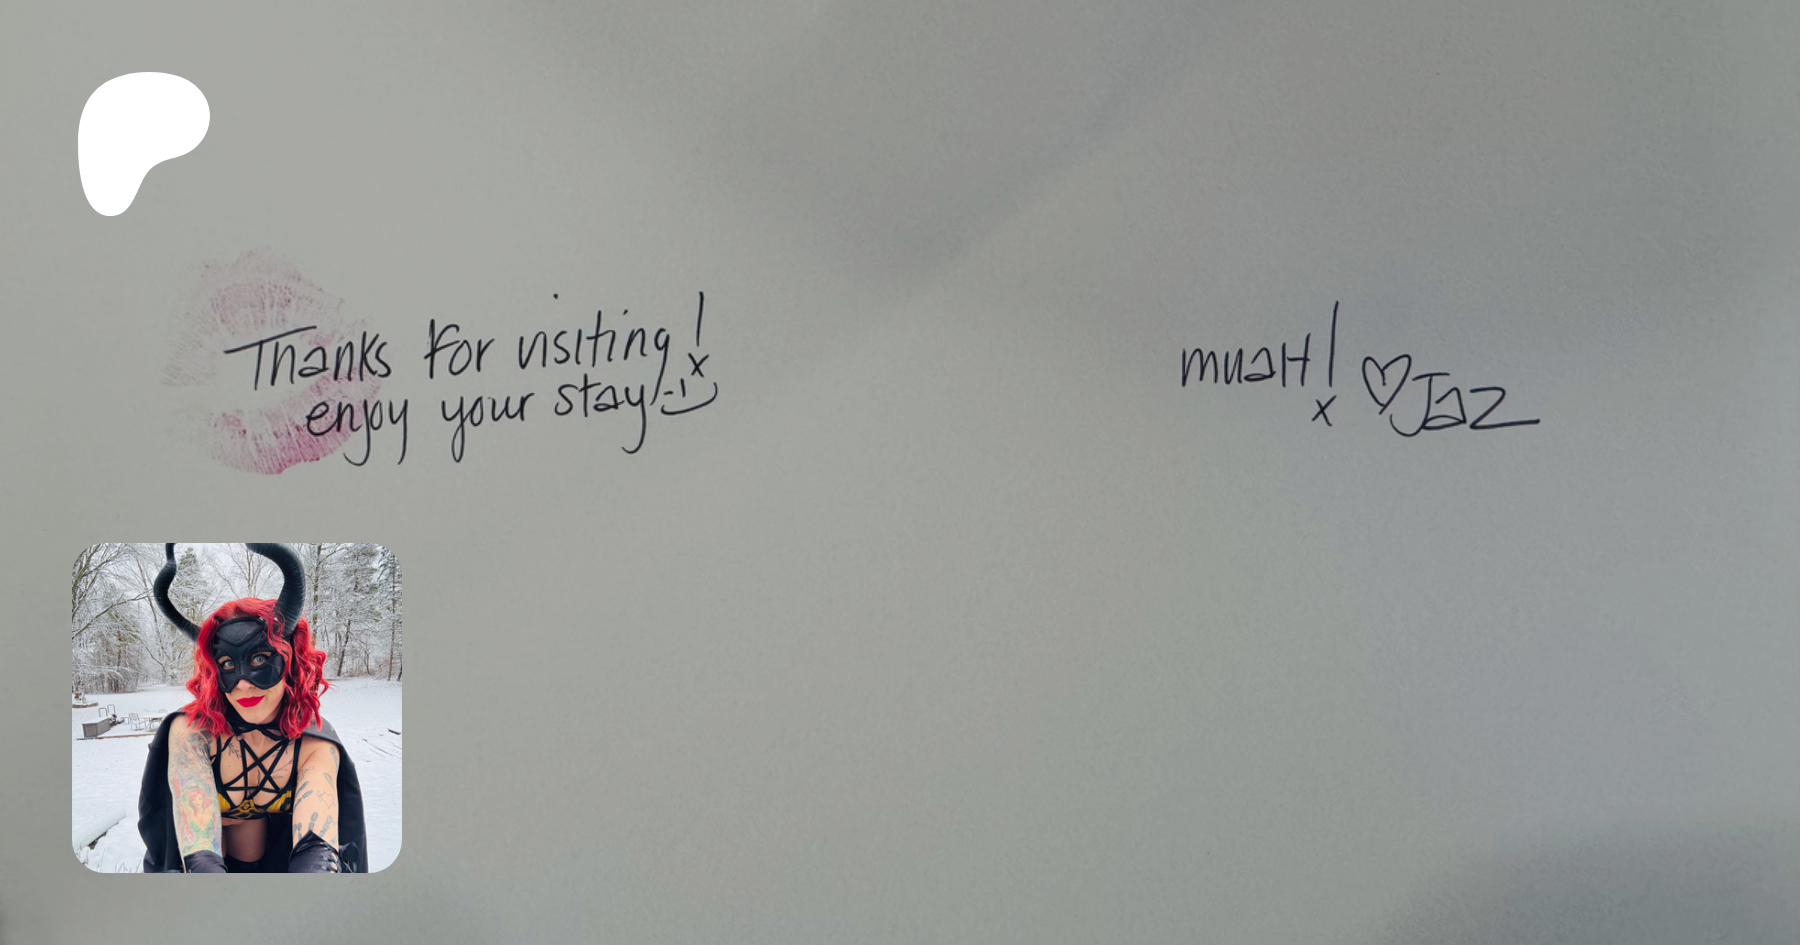 Thanks for visiting!
x
enjoy your stay :-)
muaH!
x
♡Jaz